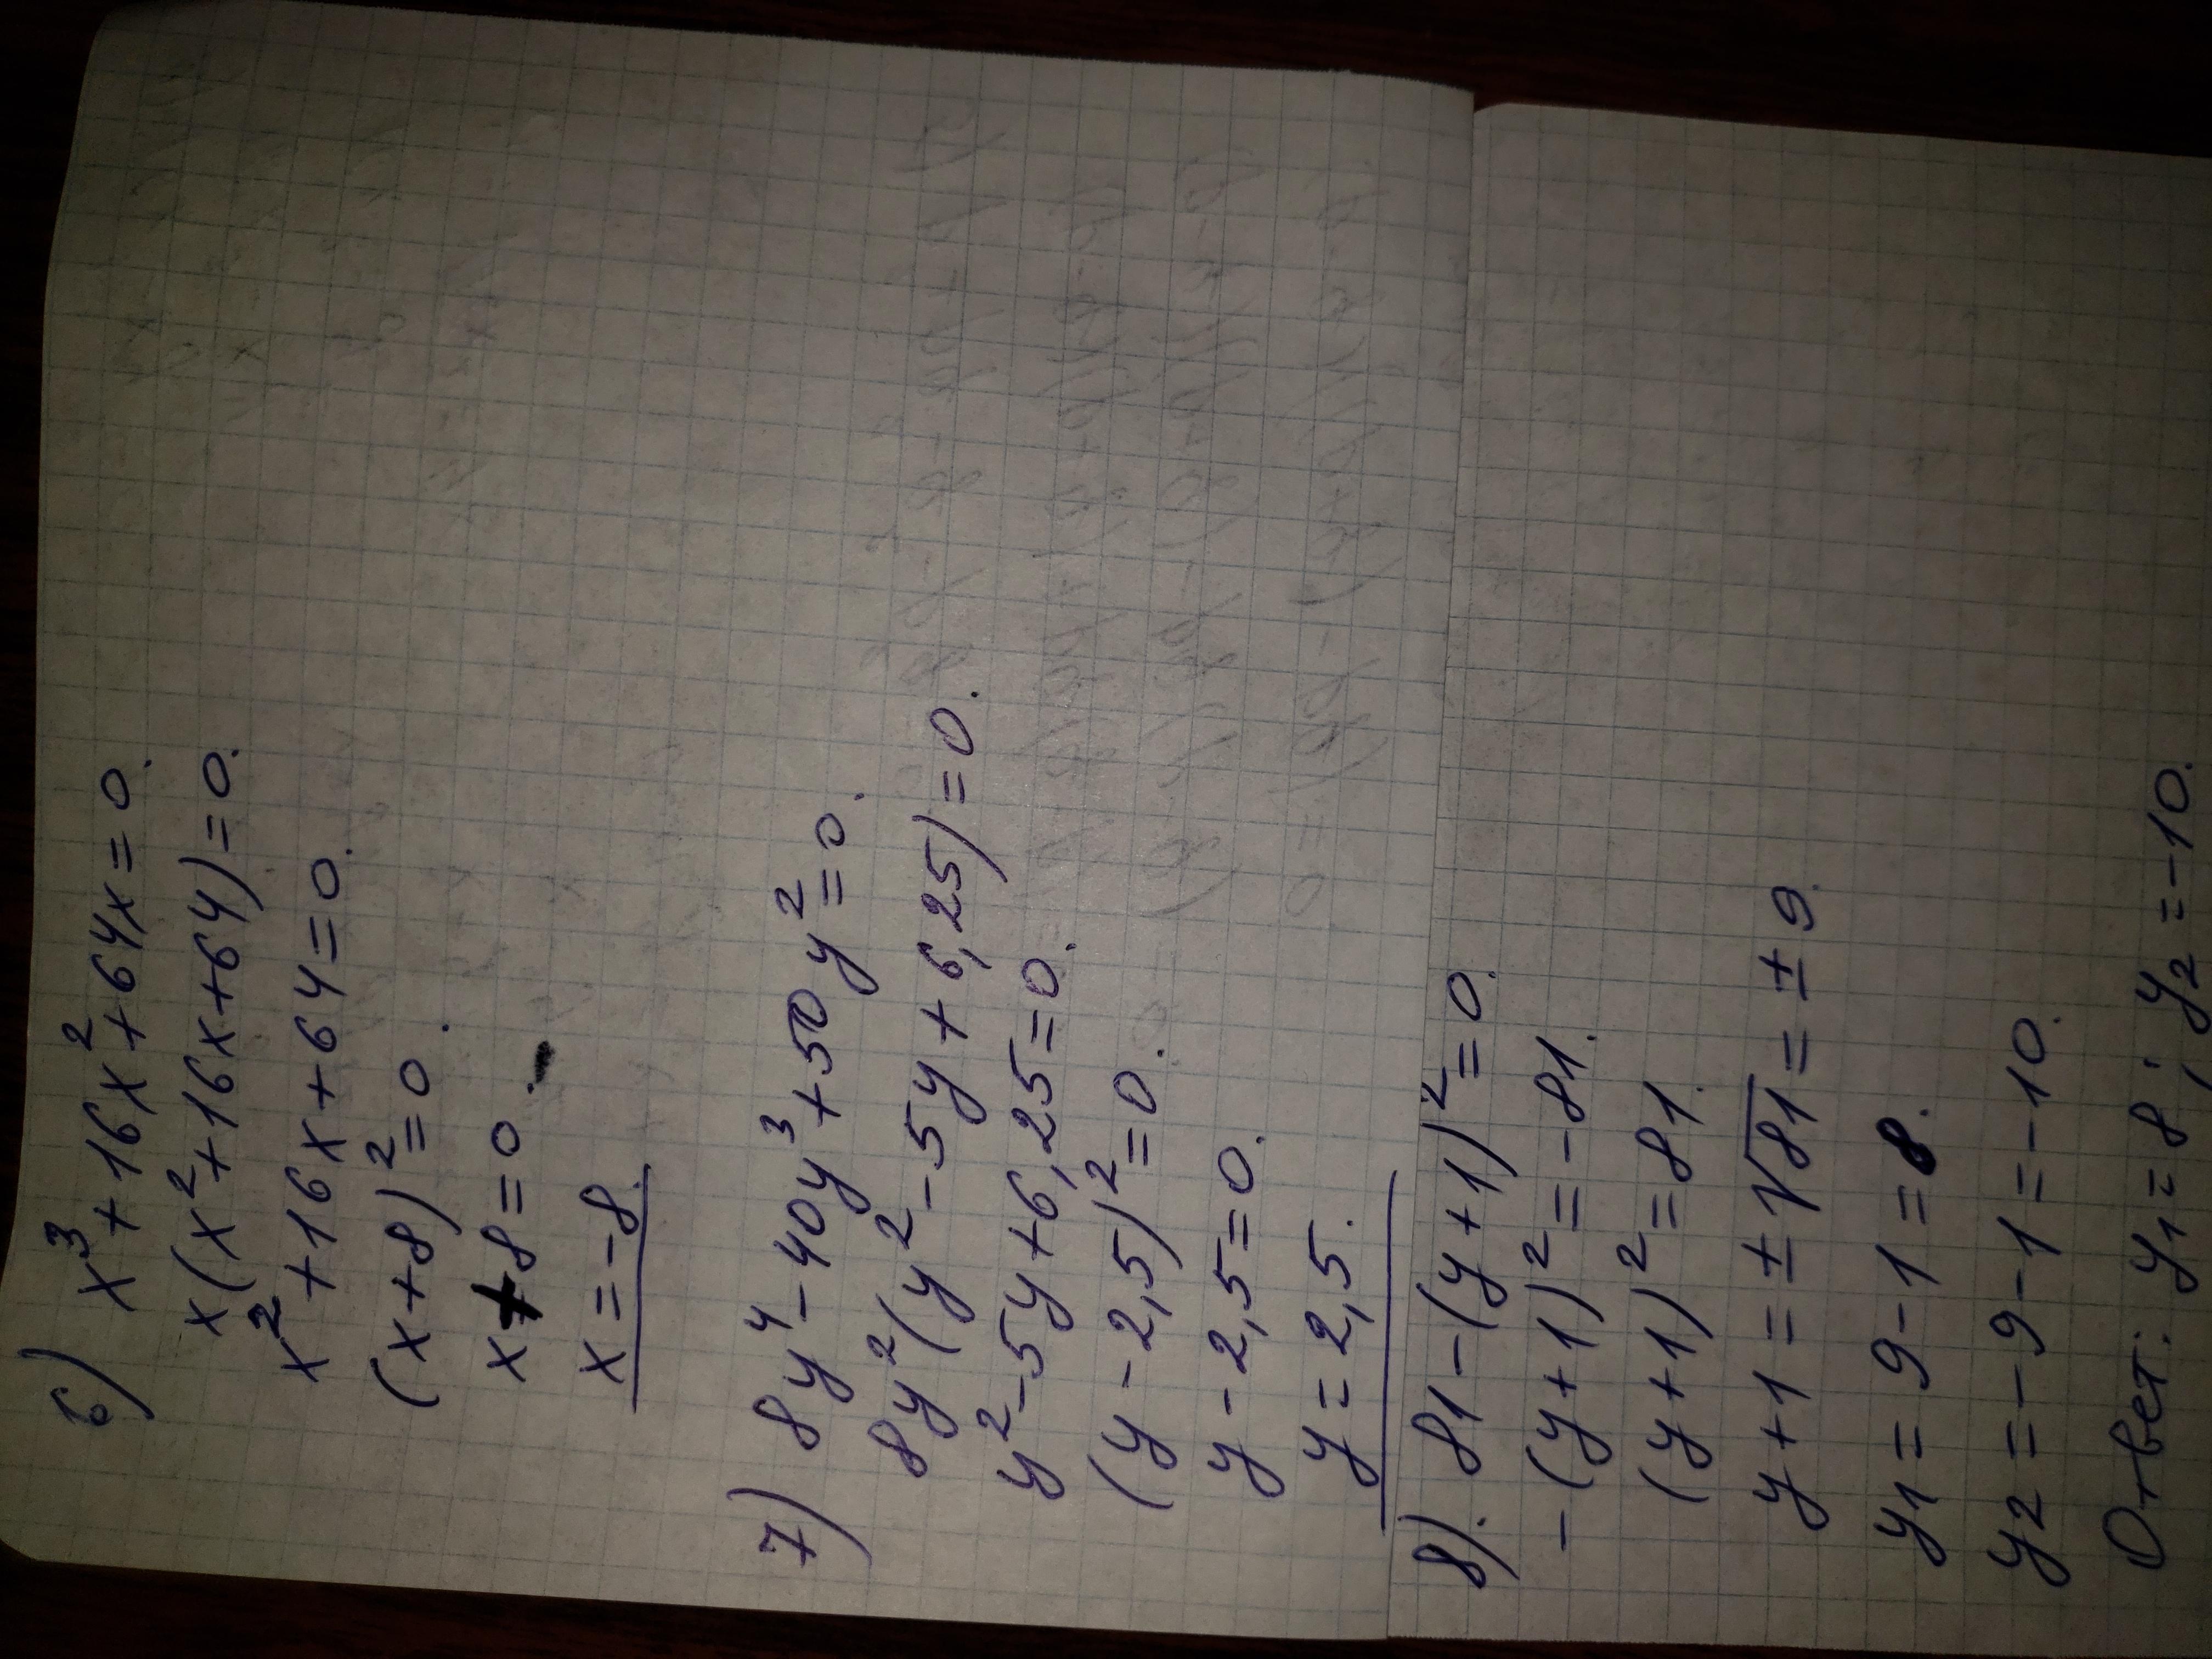 6) x³+16x²+64x=0.
x(x²+16x+64)=0.
x²+16x+64=0.
(x+8)²=0.
x+8=0.
x=-8.
7) 8y⁴-40y³+50y²=0.
8y²(y²-5y+6,25)=0.
y²-5y+6,25=0.
(y-2,5)²=0.
y-2,5=0.
y=2,5.
8). 81-(y+1)²=0.
-(y+1)²=-81.
(y+1)²=81.
y+1=±√81=±9.
y₁=9-1=8.
y₂=-9-1=-10.
Ответ: y₁=8; y₂=-10.